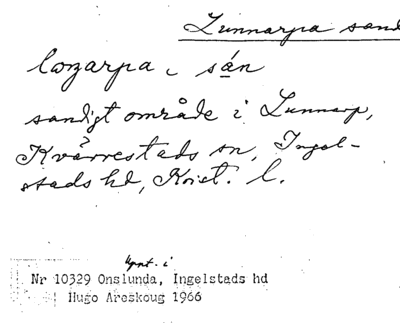 Lunnarpa sand
lɷnarpa sán
sandigt område i Lunnarp,
Kvärrestads sn, Ingel-
stads hd, Krist. l.
uppt. i
Nr 10329 Onslunda, Ingelstads hd
Hugo Areskoug 1966